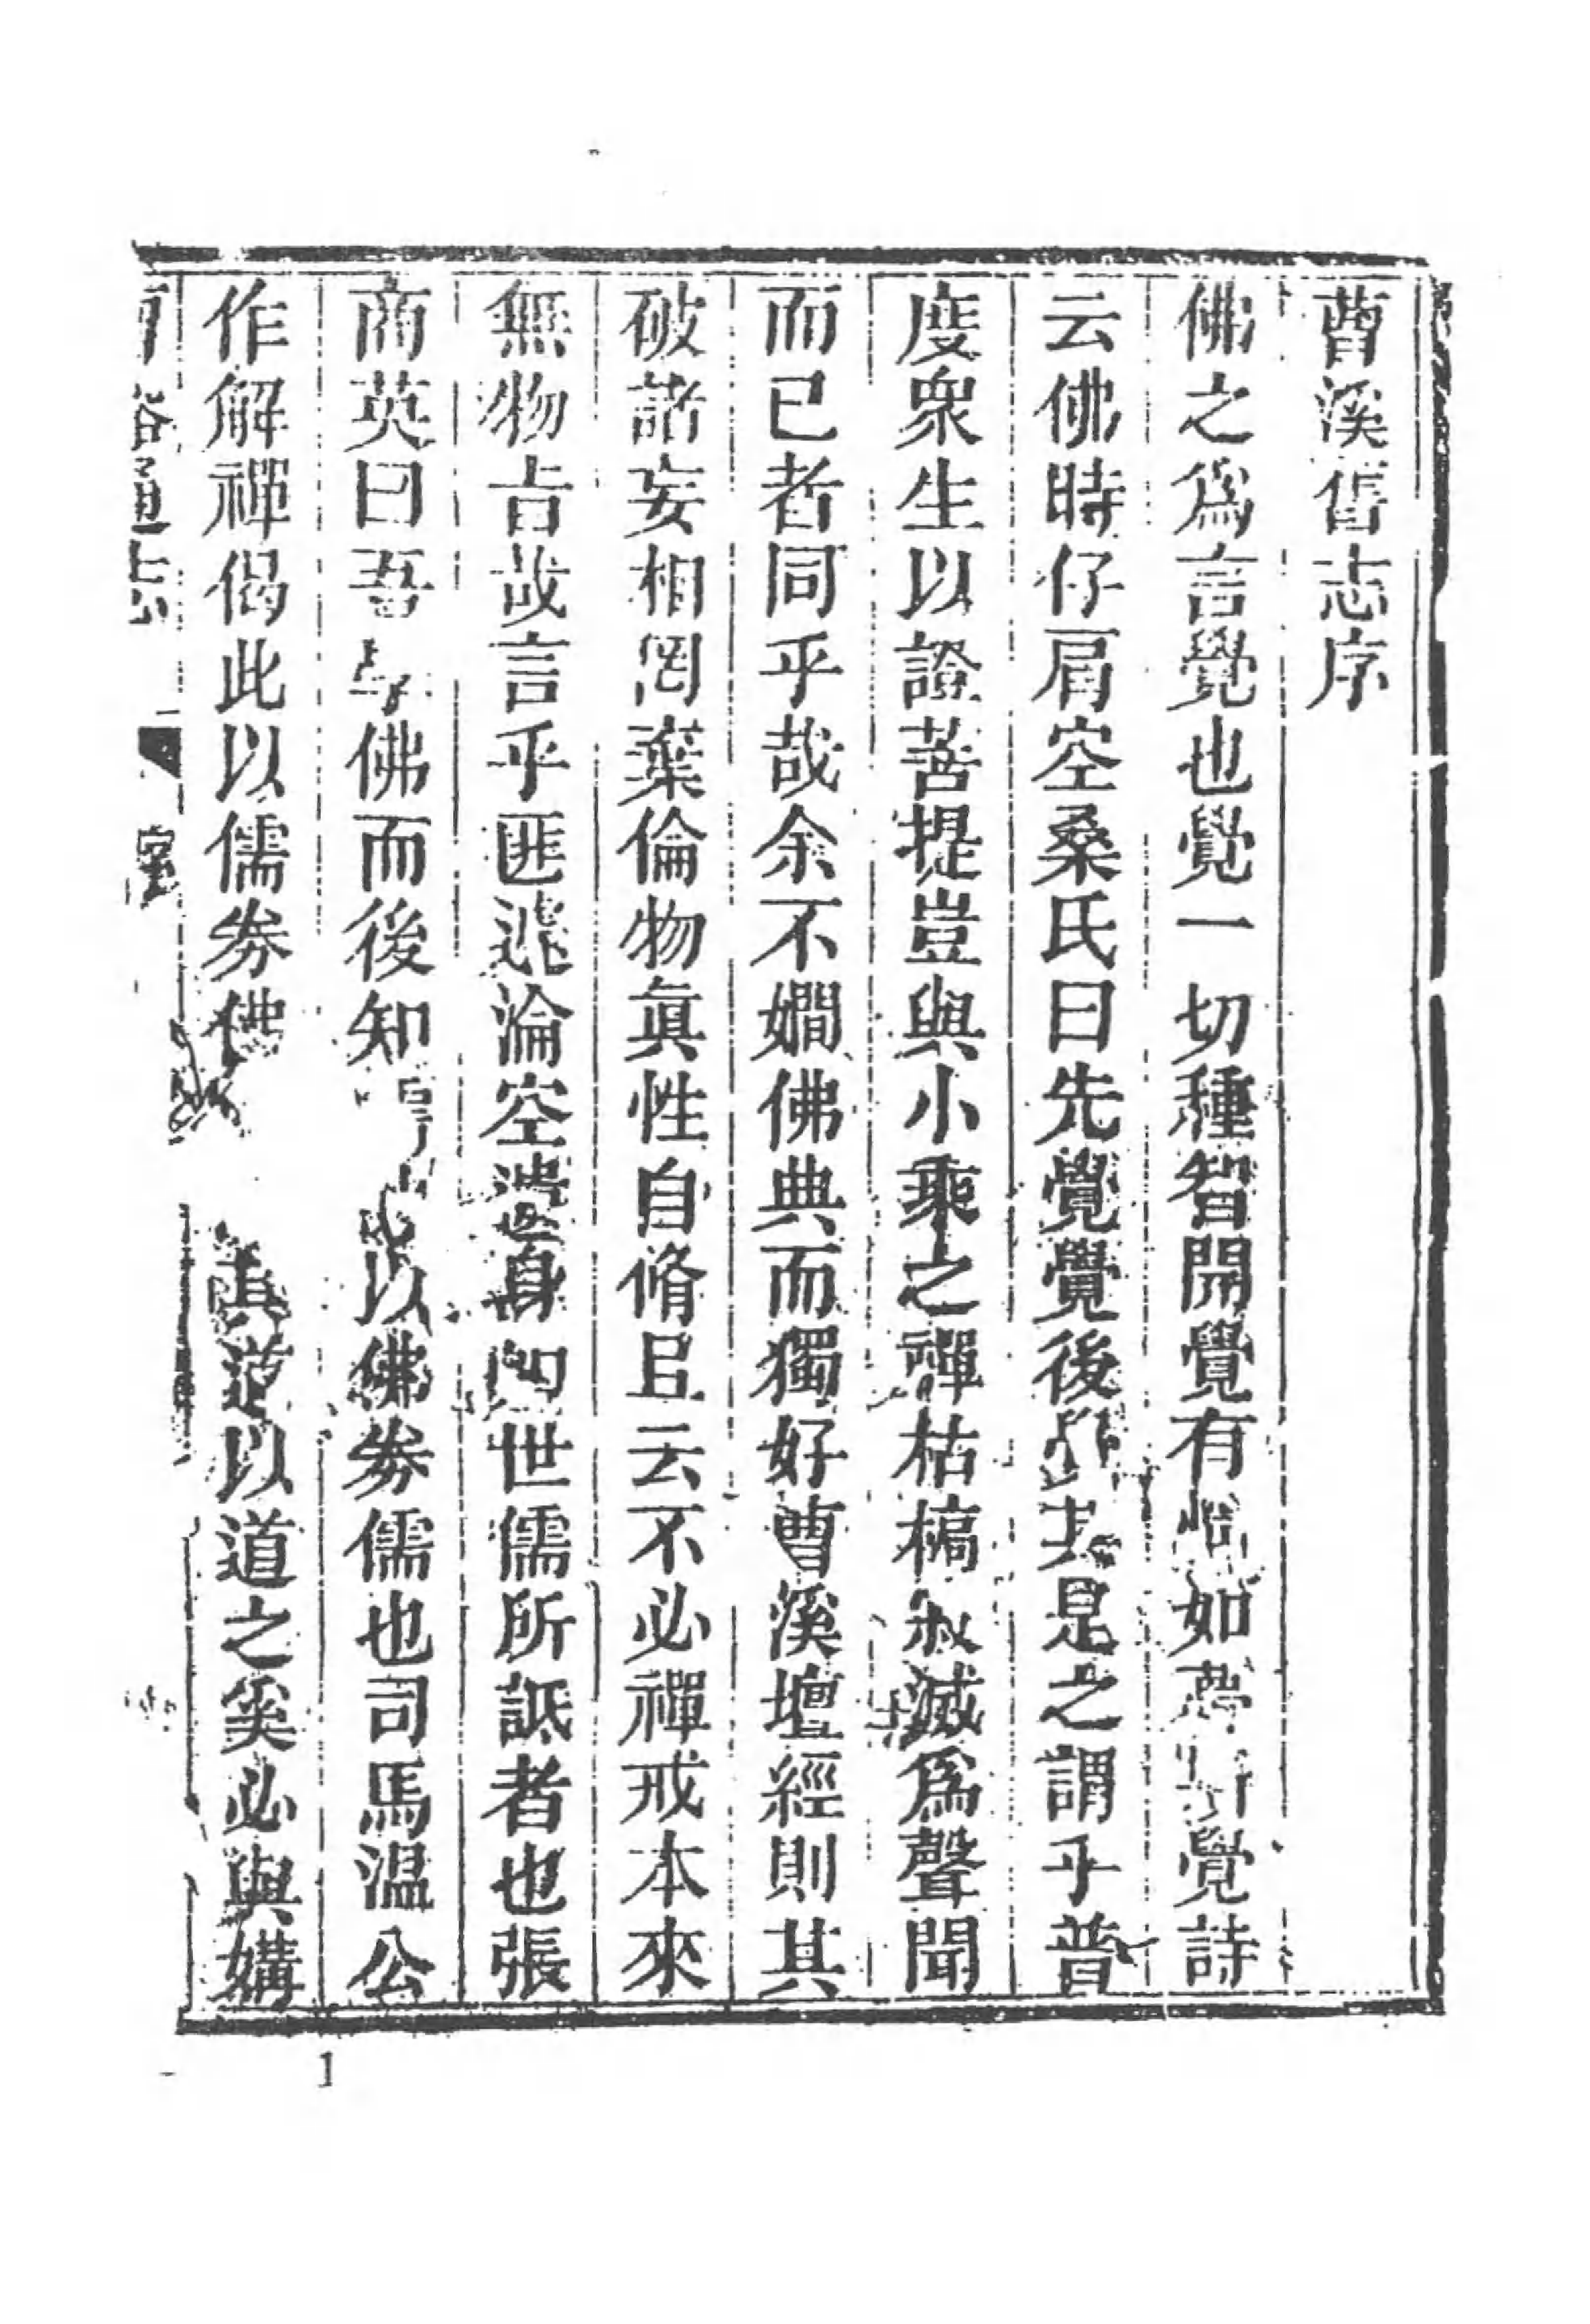 曹溪舊志序
佛之爲言覺也覺一切種智開覺有情如夢覺詩
云佛時仔肩空桑氏曰先覺覺後是之謂乎普
度衆生以證菩提豈與小乘之禪枯槁滅爲聲聞
而已者同乎哉余不嫺佛典而獨好曹溪壇經則其
破諸妄相罔棄倫物眞性自脩且云不必禪戒本來
無物旨哉言乎匪逃淪空遺身世儒所詆者也張
商英曰吾與佛而後知以佛劵儒也司馬温公
作解禪偈此以儒劵佛眞道以道之奚必與媾
通志
1